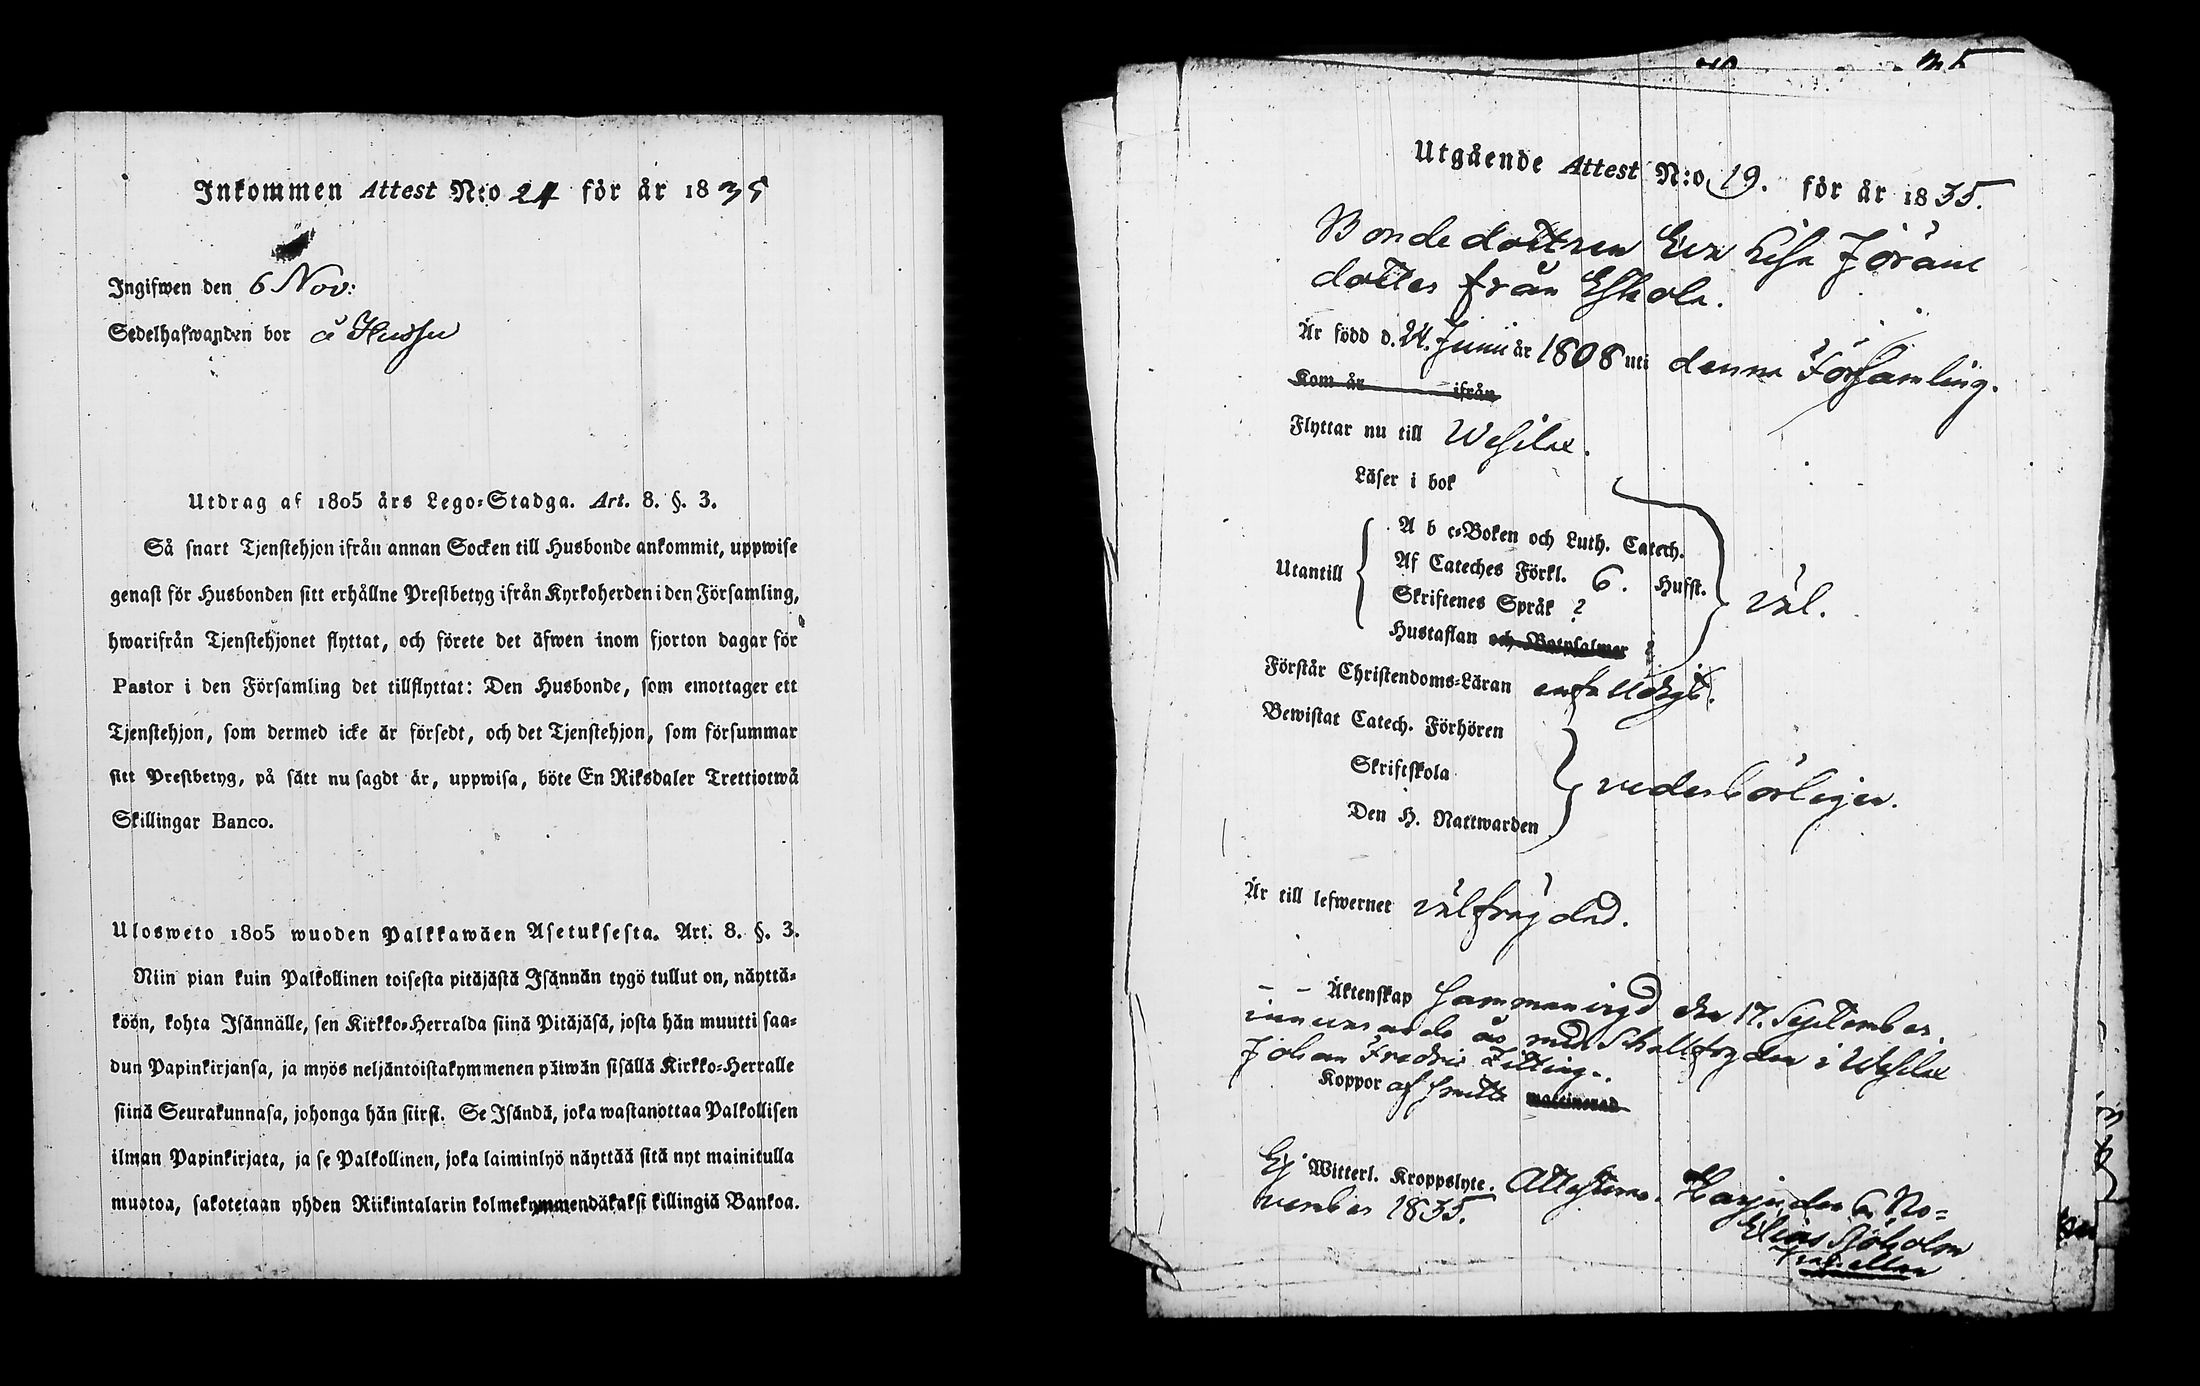 Inkommen Attest N:o 24 för år 1835
Ingifwen den 6 Nov:
Sedelhafwanden bor å
Utdrag af 1805 års Lego-Stadga. Art. 8. §. 3.
Så snart Tjenstehjon ifrån annan Socken till Husbonde ankommit, uppwise
genast för Husbonden sitt erhållne Prestbetyg ifrån Kyrkoherden i den Församling,
hwarifrån Tjenstehjonet flyttat, och förete det äfwen inom fjorton dagar för
Pastor i den Församling det tillflyttat: Den Husbonde, som emottager ett
Tjenstehjon, som dermed icke är försedt, och det Tjenstehjon, som försummar
sitt Prestbetyg, på sätt nu sagdt är, uppwisa, böte En Riksdaler Trettiotwå
Skillingar Banco.
Ulosweto 1805 wuoden Palkkawäen Asetuksesta. Art. 8. §. 3.
Niin pian kuin Palkollinen toisesta pitäjästä Isännän tygö tullut on, näyttä-
köön, kohta Isännälle, sen Kirkko-Herralda siinä Pitäjäsä, josta hän muutti saa-
dun Papinkirjansa, ja myös neljäntoistakymmenen päiwän sisällä Kirkko-Herralle
siinä Seurakunnasa, johonga hän siirst. Se Isändä, joka wastanottaa Palkollisen
ilman Papinkirjata, ja se Palkollinen, joka laiminlyö näyttää sitä nyt mainitulla
muotoa, sakotetaan yhden Riikintalarin kolmekymmendäkaksi killingiä Bankoa.
Utgående Attest N:o 19. för år 1835.
Bondedottren Eva Lisa Jörans
dotter från Eskola.
Är född d. 24. Junii år 1808 uti denna Församling.
Kom år ifrån
Flyttar nu till Wesilax.
Läser i bok
A b c-Boken och Luth. Catech.
Utantill Af Cateches Förkl. 6. Hufst. väl.
Skriftenes Språk ?
Hustaflan och Botpsalmer ?
Förstår Christendoms-Läran enfalldigt.
Bewistat Catech. Förhören
Skriftskola vederbörligen.
Den H. Nattwarden
Är till lefwernet välfrägdad.
– – Äktenskap sammanvigd den 17. September
innevarande år med i Wesilax
Johan Fredric
Koppor af smitta vaccinerad
Ej Witterl. Kroppslyte. Attesterar. den 6 No-
vember 1835.
Elias Sjöholm
Kapellan